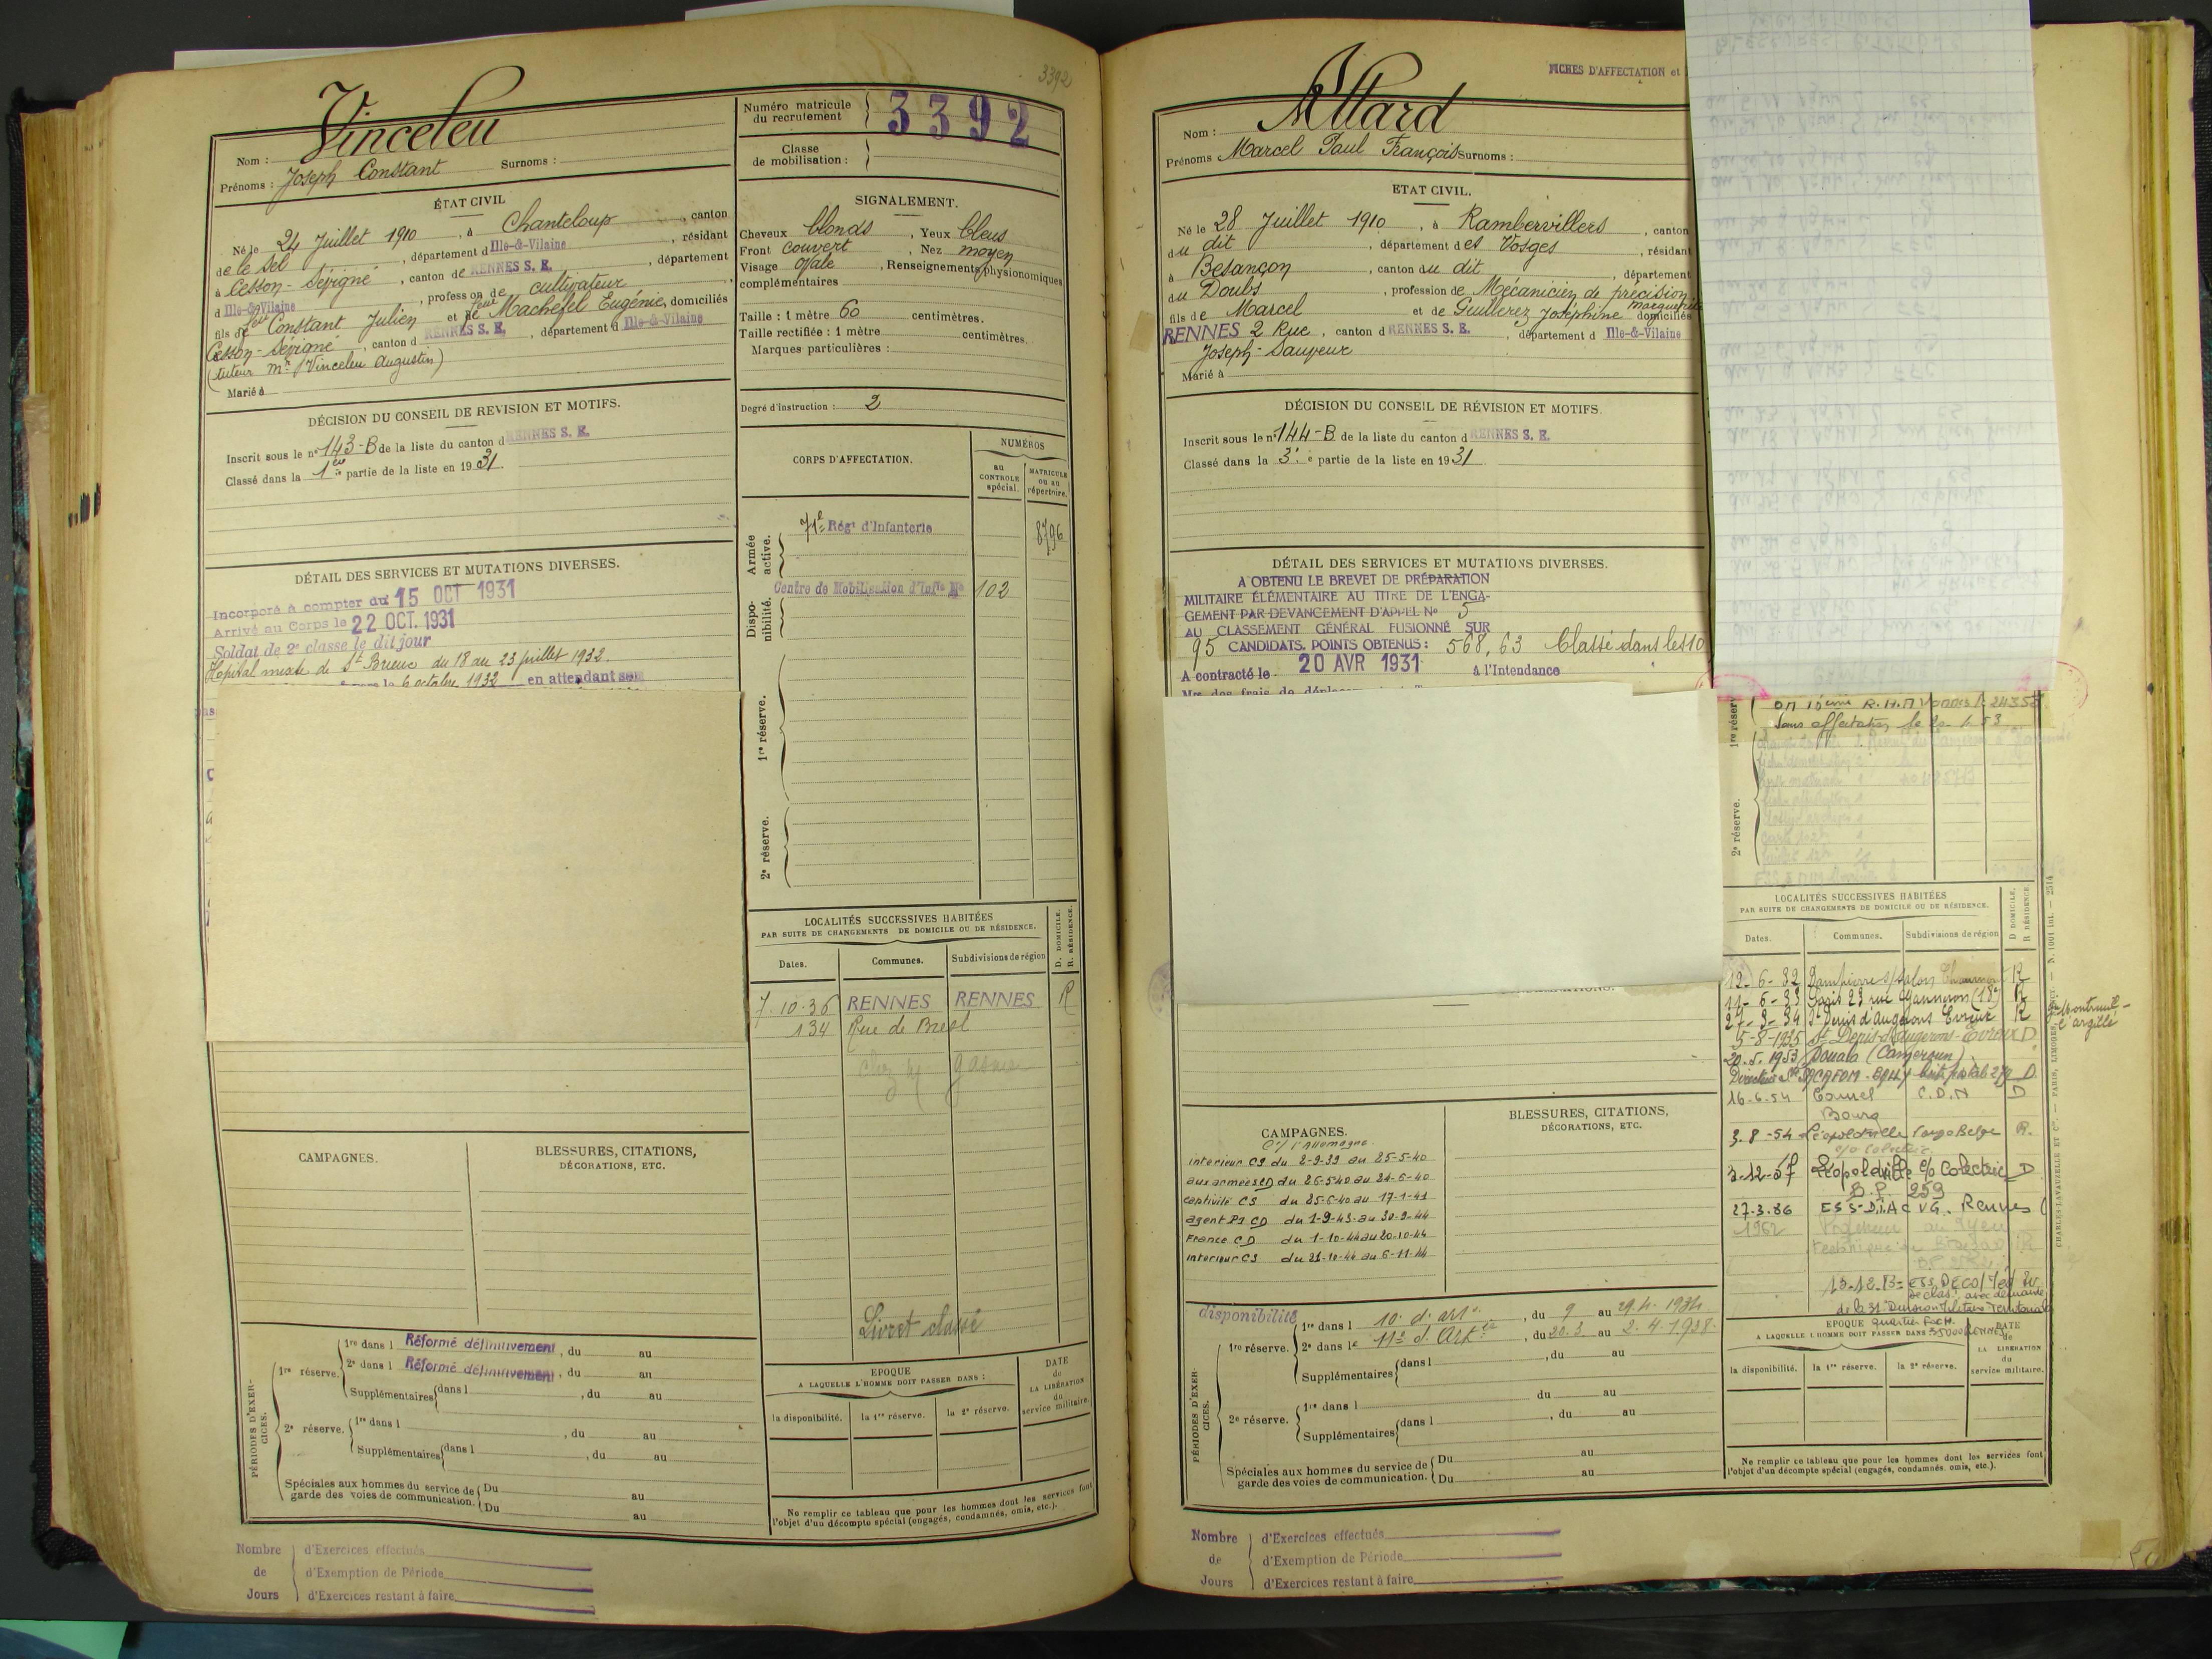 3392
Vinceleu
Nom :
Prénoms : Joseph Constant Surnoms :
Numéro matricule du recrutement 3392
Classe de mobilisation :
ÉTAT CIVIL
Né le 24 Juillet 1910, à Chanteloup, canton
de le Sel, département d Ille-&-Vilaine, résidant
à Cesson-Sévigné, canton de RENNES S. E., département
d Ille-&-Vilaine, profession de cultivateur
fils de feu Constant Julien et de feue Machefel Eugénie, domiciliés
Cesson-Sévigné, canton d RENNES S. E., département d Ille-&-Vilaine
(tuteur Mr Vinceleu Augustin)
Marié à
SIGNALEMENT.
Cheveux blonds, Yeux bleus
Front couvert, Nez moyen
Visage ovale, Renseignements physionomiques
complémentaires
Taille : 1 mètre 60 centimètres.
Taille rectifiée : 1 mètre centimètres.
Marques particulières :
Degré d'instruction : 2
DÉCISION DU CONSEIL DE REVISION ET MOTIFS.
Inscrit sous le n° 143-B de la liste du canton d RENNES S. E.
Classé dans la 1ère partie de la liste en 1931.
CORPS D'AFFECTATION.
NUMÉROS
au CONTROLE spécial.
MATRICULE ou au répertoire.
Armée active.
71e Régt d'Infanterie 8796
Disponibilité.
Centre de Mobilisation d'Inf^ie N° 102
1re réserve.
2e réserve.
DÉTAIL DES SERVICES ET MUTATIONS DIVERSES.
Incorporé à compter du 15 OCT 1931
Arrivé au Corps le 22 OCT. 1931
Soldat de 2e classe le dit jour
Hopital mixte de St Brieuc du 18 au 23 juillet 1932.
le 6 octobre 1932 en attendant son
LOCALITÉS SUCCESSIVES HABITÉES
PAR SUITE DE CHANGEMENTS DE DOMICILE OU DE RÉSIDENCE.
D. DOMICILE.
R. RÉSIDENCE.
Dates. Communes. Subdivisions de région
7.10.36 RENNES RENNES R
134 Rue de Brest
Livret classé
CAMPAGNES.
BLESSURES, CITATIONS,
DÉCORATIONS, ETC.
PÉRIODES D'EXERCICES.
1re réserve.
1re dans l Réformé définitivement, du au
2e dans l Réformé définitivement, du au
Supplémentaires dans l, du au
2e réserve.
1re dans l, du au
Supplémentaires dans l, du au
Spéciales aux hommes du service de garde des voies de communication.
Du au
Du au
EPOQUE
A LAQUELLE L'HOMME DOIT PASSER DANS :
la disponibilité. la 1re réserve. la 2e réserve.
DATE de LA LIBÉRATION du service militaire.
Ne remplir ce tableau que pour les hommes dont les services font
l'objet d'un décompte spécial (engagés, condamnés, omis, etc.).
Nombre de Jours
d'Exercices effectués
d'Exemption de Période
d'Exercices restant à faire
FICHES D'AFFECTATION et
Allard
Nom :
Prénoms Marcel Paul François Surnoms :
ETAT CIVIL.
Né le 28 Juillet 1910, à Rambervillers, canton
du dit, département des Vosges, résidant
à Besançon, canton du dit, département
du Doubs, profession de Mécanicien de précision
fils de Marcel et de Guillerez Joséphine Marguerite domiciliés
RENNES 2 Rue, canton d RENNES S. E., département d Ille-&-Vilaine
Joseph-Sauveur
Marié à
DÉCISION DU CONSEIL DE RÉVISION ET MOTIFS.
Inscrit sous le n° 144-B de la liste du canton d RENNES S. E.
Classé dans la 3e partie de la liste en 1931
DÉTAIL DES SERVICES ET MUTATIONS DIVERSES.
A OBTENU LE BREVET DE PRÉPARATION
MILITAIRE ÉLÉMENTAIRE AU TITRE DE L'ENGA-
GEMENT PAR DEVANCEMENT D'APPEL N° 5
AU CLASSEMENT GÉNÉRAL FUSIONNÉ SUR
95 CANDIDATS. POINTS OBTENUS : 568,63 Classé dans les 10
A contracté le 20 AVR 1931 à l'Intendance
1re réserve
Sans affectation le
2e réserve.
LOCALITÉS SUCCESSIVES HABITÉES
PAR SUITE DE CHANGEMENTS DE DOMICILE OU DE RÉSIDENCE.
D DOMICILE.
R RÉSIDENCE.
Dates. Communes. Subdivisions de région
12-6-32 Dampierre s/Salon R
11-6-33 Paris 23 rue Ganneron (18e) R
27-3-34 St Denis d'Augerons Evreux R
5-8-1935 St Denis d'Augerons Evreux D.
20.5.1953 Douala (Cameroun)
16-6-54 D
3-8-54 Léopoldville Congo Belge R.
3-12-57 Léopoldville c/o Colectric D
B.P. 259
27.3.86 Rennes
1962
Quartier Foch
35000 RENNES
CAMPAGNES.
C/ l'Allemagne
interieur CS du 2-9-39 au 25-5-40
aux armées CD du 26-5-40 au 24-6-40
captivité CS du 25-6-40 au 17-1-41
agent P1 CD du 1-9-43 au 30-9-44
France CD du 1-10-44 au 20-10-44
interieur CS du 21-10-44 au 6-11-44
BLESSURES, CITATIONS,
DÉCORATIONS, ETC.
PÉRIODES D'EXERCICES.
disponibilité
1re réserve.
1re dans l 10e d'art^ie, du 9 au 29.4.1934
2e dans le 11e d'Art^ie, du 20.3 au 2.4.1938.
Supplémentaires dans l, du au
du au
2e réserve.
1re dans l
Supplémentaires dans l, du au
Spéciales aux hommes du service de garde des voies de communication.
Du au
Du au
EPOQUE
A LAQUELLE L'HOMME DOIT PASSER DANS
la disponibilité. la 1re réserve. la 2e réserve.
DATE de LA LIBÉRATION du service militaire.
Ne remplir ce tableau que pour les hommes dont les services font
l'objet d'un décompte spécial (engagés, condamnés, omis, etc.).
Nombre de Jours
d'Exercices effectués
d'Exemption de Période
d'Exercices restant à faire